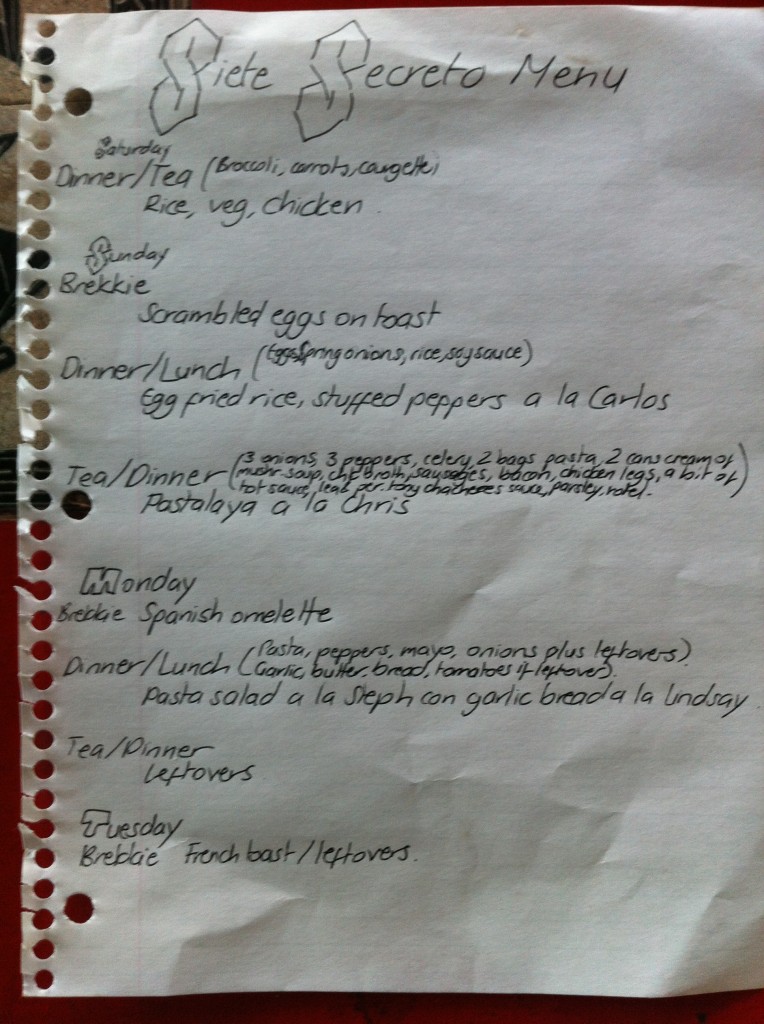 Siete Secreto Menu
Saturday
Dinner/Tea (Broccoli, carrots, caurgette)
Rice, veg, chicken.
Sunday
Brekkie
Scrambled eggs on toast
Dinner/Lunch (Eggs, Spring onions, rice, soy sauce)
Egg fried rice, stuffed peppers a la Carlos
(3 onions, 3 peppers, celery, 2 bags pasta, 2 cans cream of
Tea/Dinner mushr soup, chk broth, sausages, bacon, chicken legs, a bit of)
hot sauce, lea & per. tony chacheres sauce, parsley, rotel.
Pastalaya a la Chris
Monday
Brekkie Spanish omelette
(Pasta, peppers, mayo, onions plus leftovers)
Dinner/Lunch (Garlic, butter, bread, tomatoes if leftover).
Pasta salad a la Steph con garlic bread a la Lindsay
Tea/Dinner
Leftovers
Tuesday
Brekkie French toast/leftovers.